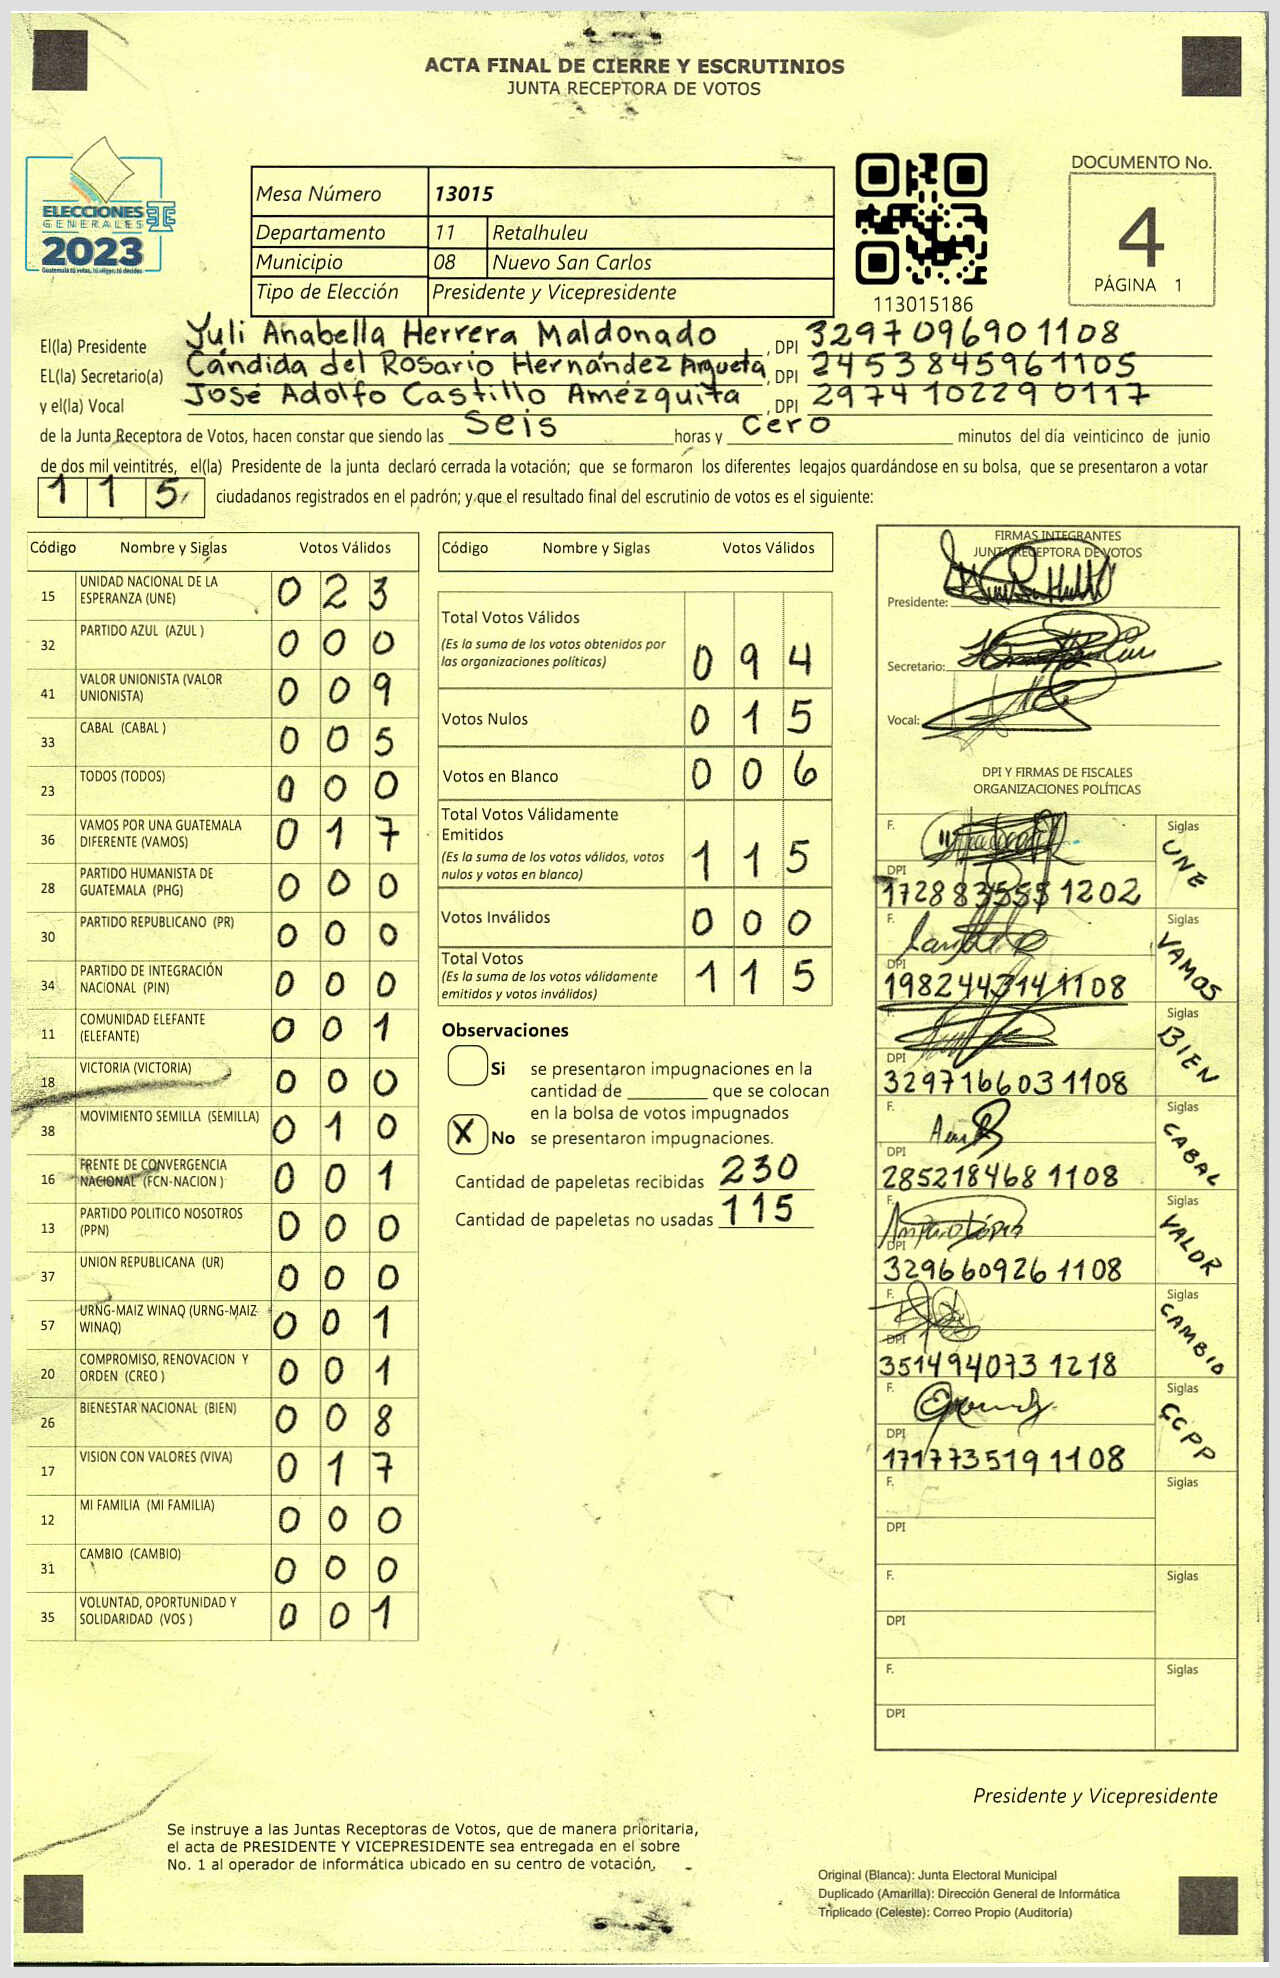 ACTA FINAL DE CIERRE Y ESCRUTINIOS
JUNTA RECEPTORA DE VOTOS
ELECCIONES
GENERALES
2023
Guatemala tú votas, tú eliges, tú decides
Mesa Número 13015
Departamento 11 Retalhuleu
Municipio 08 Nuevo San Carlos
Tipo de Elección Presidente y Vicepresidente
113015186
DOCUMENTO No.
4
PÁGINA 1
El(la) Presidente Yuli Anabella Herrera Maldonado, DPI 3297096901108
EL(la) Secretario(a) Cándida del Rosario Hernández Argueta, DPI 2453845961105
y el(la) Vocal José Adolfo Castillo Amézquita, DPI 2974102290117
de la Junta Receptora de Votos, hacen constar que siendo las Seis horas y Cero minutos del día veinticinco de junio
de dos mil veintitrés, el(la) Presidente de la junta declaró cerrada la votación; que se formaron los diferentes legajos guardándose en su bolsa, que se presentaron a votar
115 ciudadanos registrados en el padrón; y que el resultado final del escrutinio de votos es el siguiente:
Código Nombre y Siglas Votos Válidos
15 UNIDAD NACIONAL DE LA ESPERANZA (UNE) 023
32 PARTIDO AZUL (AZUL ) 000
41 VALOR UNIONISTA (VALOR UNIONISTA) 009
33 CABAL (CABAL ) 005
23 TODOS (TODOS) 000
36 VAMOS POR UNA GUATEMALA DIFERENTE (VAMOS) 017
28 PARTIDO HUMANISTA DE GUATEMALA (PHG) 000
30 PARTIDO REPUBLICANO (PR) 000
34 PARTIDO DE INTEGRACIÓN NACIONAL (PIN) 000
11 COMUNIDAD ELEFANTE (ELEFANTE) 001
18 VICTORIA (VICTORIA) 000
38 MOVIMIENTO SEMILLA (SEMILLA) 010
16 FRENTE DE CONVERGENCIA NACIONAL (FCN-NACION ) 001
13 PARTIDO POLITICO NOSOTROS (PPN) 000
37 UNION REPUBLICANA (UR) 000
57 URNG-MAIZ WINAQ (URNG-MAIZ WINAQ) 001
20 COMPROMISO, RENOVACION Y ORDEN (CREO ) 001
26 BIENESTAR NACIONAL (BIEN) 008
17 VISION CON VALORES (VIVA) 017
12 MI FAMILIA (MI FAMILIA) 000
31 CAMBIO (CAMBIO) 000
35 VOLUNTAD, OPORTUNIDAD Y SOLIDARIDAD (VOS ) 001
Código Nombre y Siglas Votos Válidos
Total Votos Válidos
(Es la suma de los votos obtenidos por
las organizaciones políticas) 094
Votos Nulos 015
Votos en Blanco 006
Total Votos Válidamente
Emitidos
(Es la suma de los votos válidos, votos
nulos y votos en blanco) 115
Votos Inválidos 000
Total Votos
(Es la suma de los votos válidamente
emitidos y votos inválidos) 115
Observaciones
Si se presentaron impugnaciones en la
cantidad de ________ que se colocan
en la bolsa de votos impugnados
X No se presentaron impugnaciones.
Cantidad de papeletas recibidas 230
Cantidad de papeletas no usadas 115
FIRMAS INTEGRANTES
JUNTA RECEPTORA DE VOTOS
Presidente:
Secretario:
Vocal:
DPI Y FIRMAS DE FISCALES
ORGANIZACIONES POLÍTICAS
F. Siglas UNE
DPI 1728835551202
F. Siglas VAMOS
DPI 1982443141108
F. Siglas BIEN
DPI 3297166031108
F. Siglas CABAL
DPI 2852184681108
F. Siglas VALOR
DPI 3296609261108
F. Siglas CAMBIO
DPI 3514940731218
F. Siglas CCPP
DPI 1717735191108
F. Siglas
DPI
F. Siglas
DPI
F. Siglas
DPI
Presidente y Vicepresidente
Se instruye a las Juntas Receptoras de Votos, que de manera prioritaria,
el acta de PRESIDENTE Y VICEPRESIDENTE sea entregada en el sobre
No. 1 al operador de informática ubicado en su centro de votación,
Original (Blanca): Junta Electoral Municipal
Duplicado (Amarilla): Dirección General de Informática
Triplicado (Celeste): Correo Propio (Auditoría)